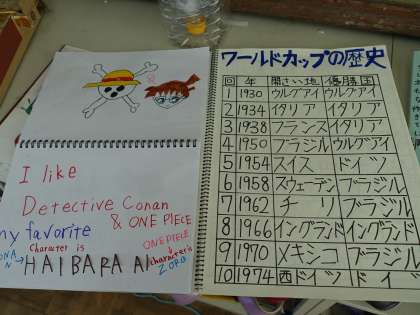 I like
Detective Conan
& ONE PIECE
my favorite
Character is
HAIBARA AI
ONE PIECE
character is
ZORO
ワールドカップの歴史
回 年 開さい地 優勝国
1 1930 ウルグアイ ウルグアイ
2 1934 イタリア イタリア
3 1938 フランス イタリア
4 1950 ブラジル ウルグアイ
5 1954 スイス ドイツ
6 1958 スウェーデン ブラジル
7 1962 チリ ブラジル
8 1966 イングランド イングランド
9 1970 メキシコ ブラジル
10 1974 西ドイツ ドイ